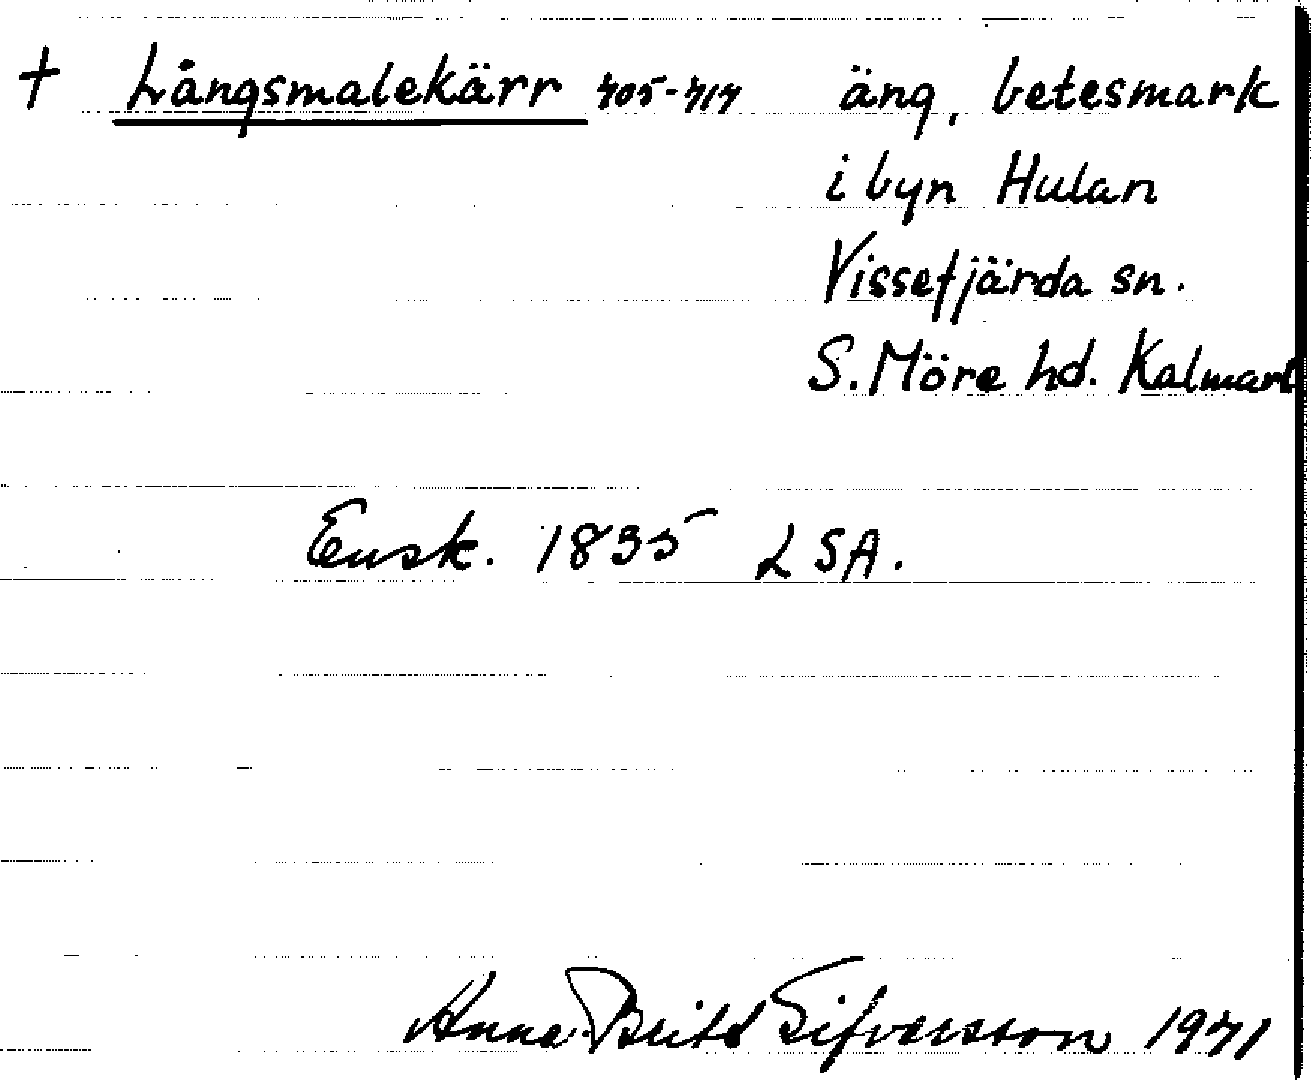 † Långsmalekärr 705-717 äng, betesmark
i byn Hulan
Vissefjärda sn.
S. Möre hd. Kalmarl
Ensk. 1835 LSA.
Anna-Britt Sifversson 1971